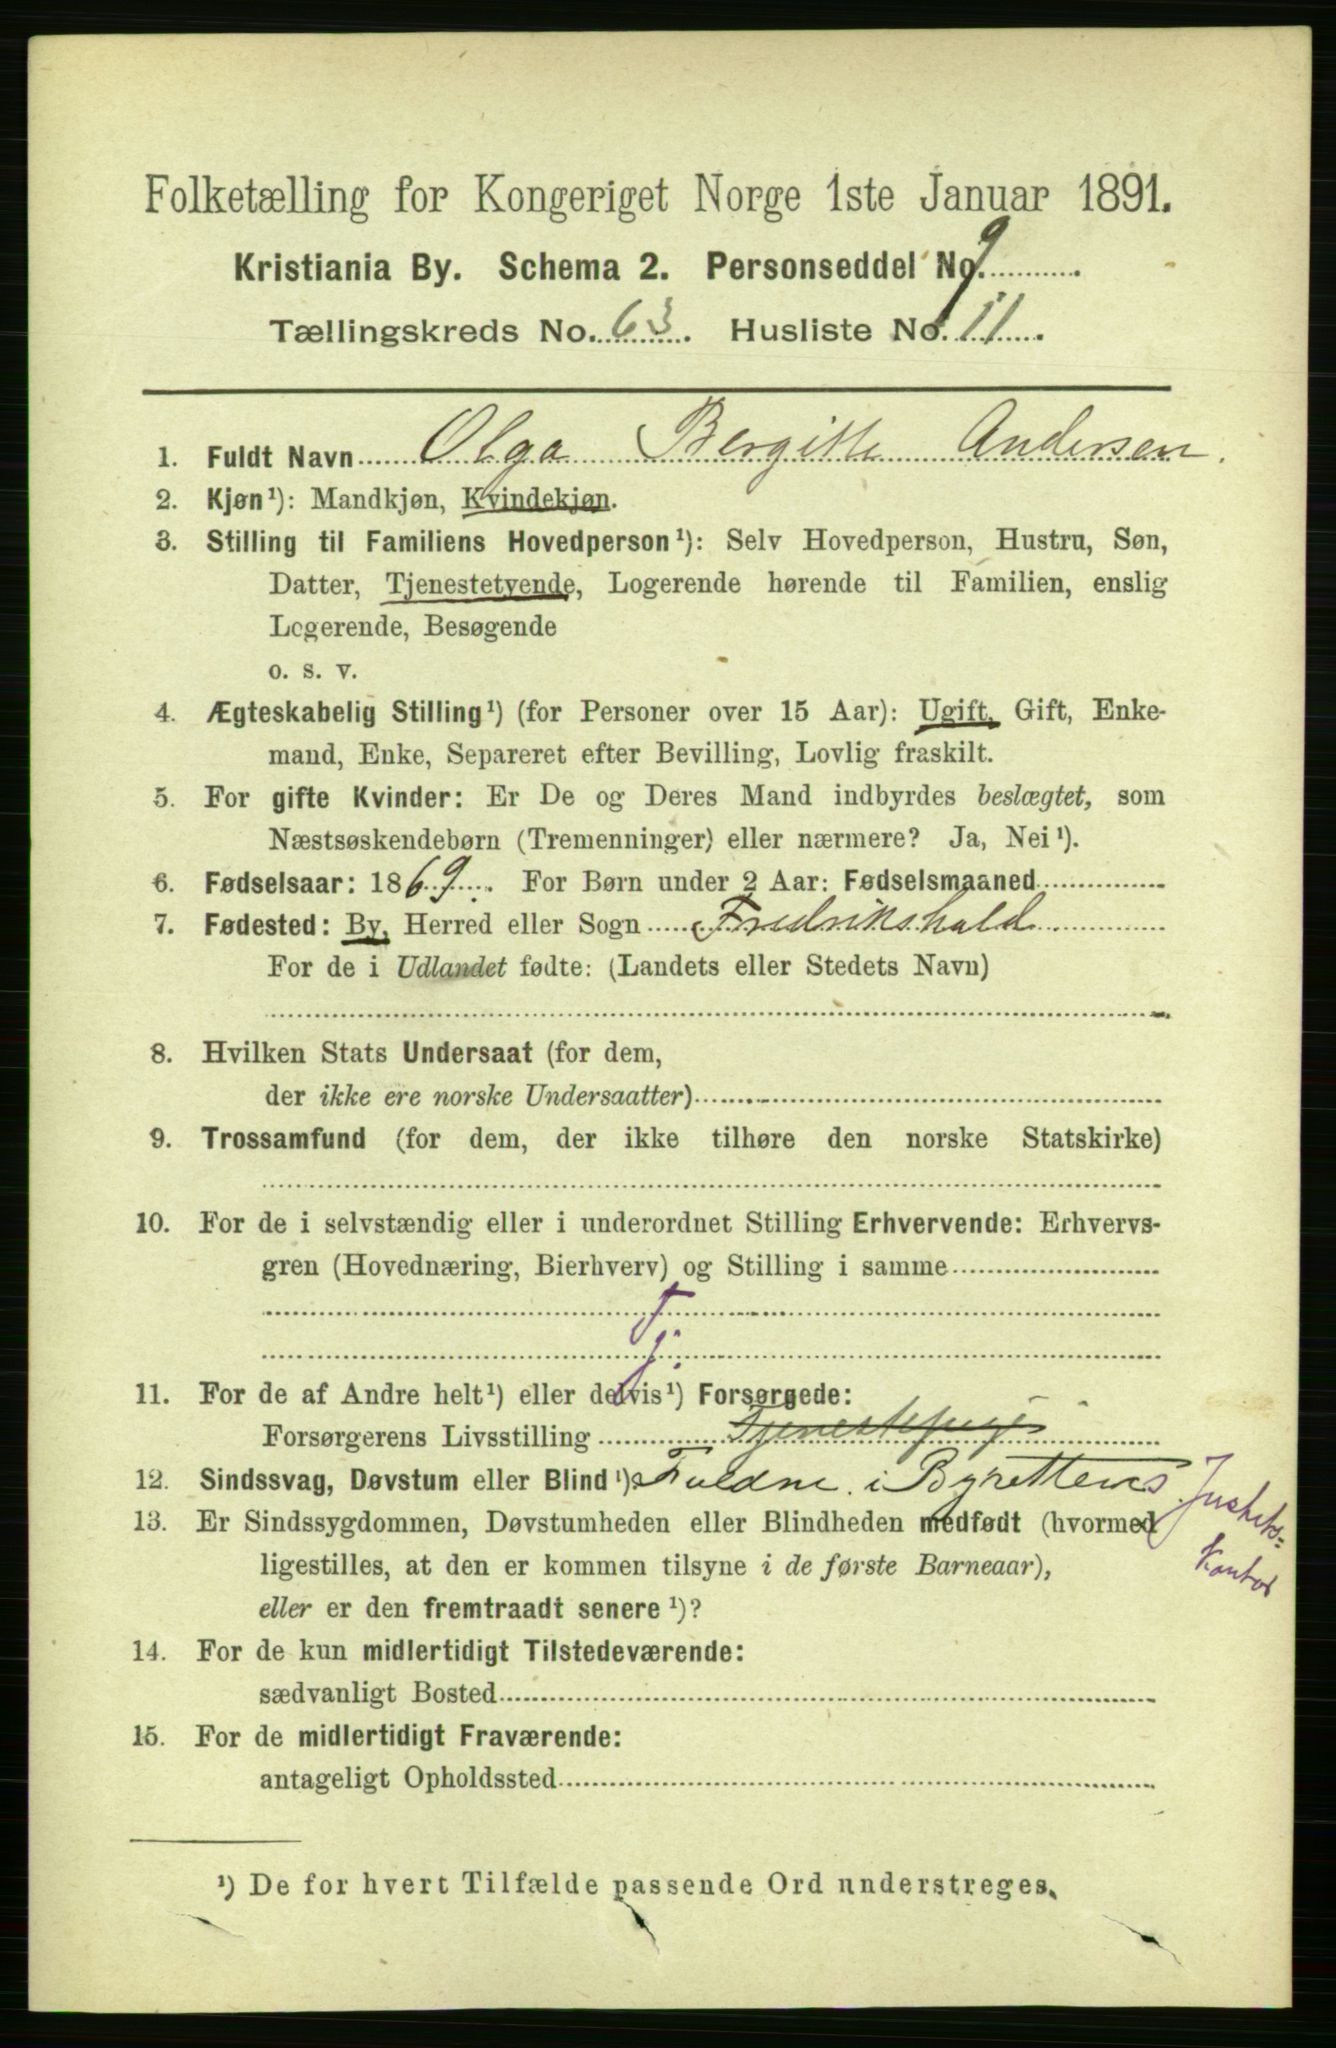 Folketælling for Kongeriget Norge 1ste Januar 1891.
Kristiania By. Schema 2. Personseddel No. 9
Tællingskreds No. 63. Husliste No. 11.
1. Fuldt Navn Olga Bergitte Andersen.
2. Kjøn¹): Mandkjøn, Kvindekjøn.
3. Stilling til Familiens Hovedperson¹): Selv Hovedperson, Hustru, Søn,
Datter, Tjenestetyende, Logerende hørende til Familien, enslig
Logerende, Besøgende
o. s. v.
4. Ægteskabelig Stilling¹) (for Personer over 15 Aar): Ugift, Gift, Enke-
mand, Enke, Separeret efter Bevilling, Lovlig fraskilt.
5. For gifte Kvinder: Er De og Deres Mand indbyrdes beslægtet, som
Næstsøskendebørn (Tremenninger) eller nærmere? Ja, Nei¹).
6. Fødselsaar: 1869. For Børn under 2 Aar: Fødselsmaaned
7. Fødested: By, Herred eller Sogn Fredrikshald
For de i Udlandet fødte: (Landets eller Stedets Navn)
8. Hvilken Stats Undersaat (for dem,
der ikke ere norske Undersaatter)
9. Trossamfund (for dem, der ikke tilhøre den norske Statskirke)
10. For de i selvstændig eller i underordnet Stilling Erhvervende: Erhvervs-
gren (Hovednæring, Bierhverv) og Stilling i samme
T
j.
11. For de af Andre helt¹) eller delvis¹) Forsørgede:
Forsørgerens Livsstilling Tjenestepige
12. Sindssvag, Døvstum eller Blind¹). i Byrettens Justits-
Kontor
13. Er Sindssygdommen, Døvstumheden eller Blindheden medfødt (hvormed
ligestilles, at den er kommen tilsyne i de første Barneaar),
eller er den fremtraadt senere¹)?
14. For de kun midlertidigt Tilstedeværende:
sædvanligt Bosted
15. For de midlertidigt Fraværende:
antageligt Opholdssted
¹) De for hvert Tilfælde passende Ord understreges.